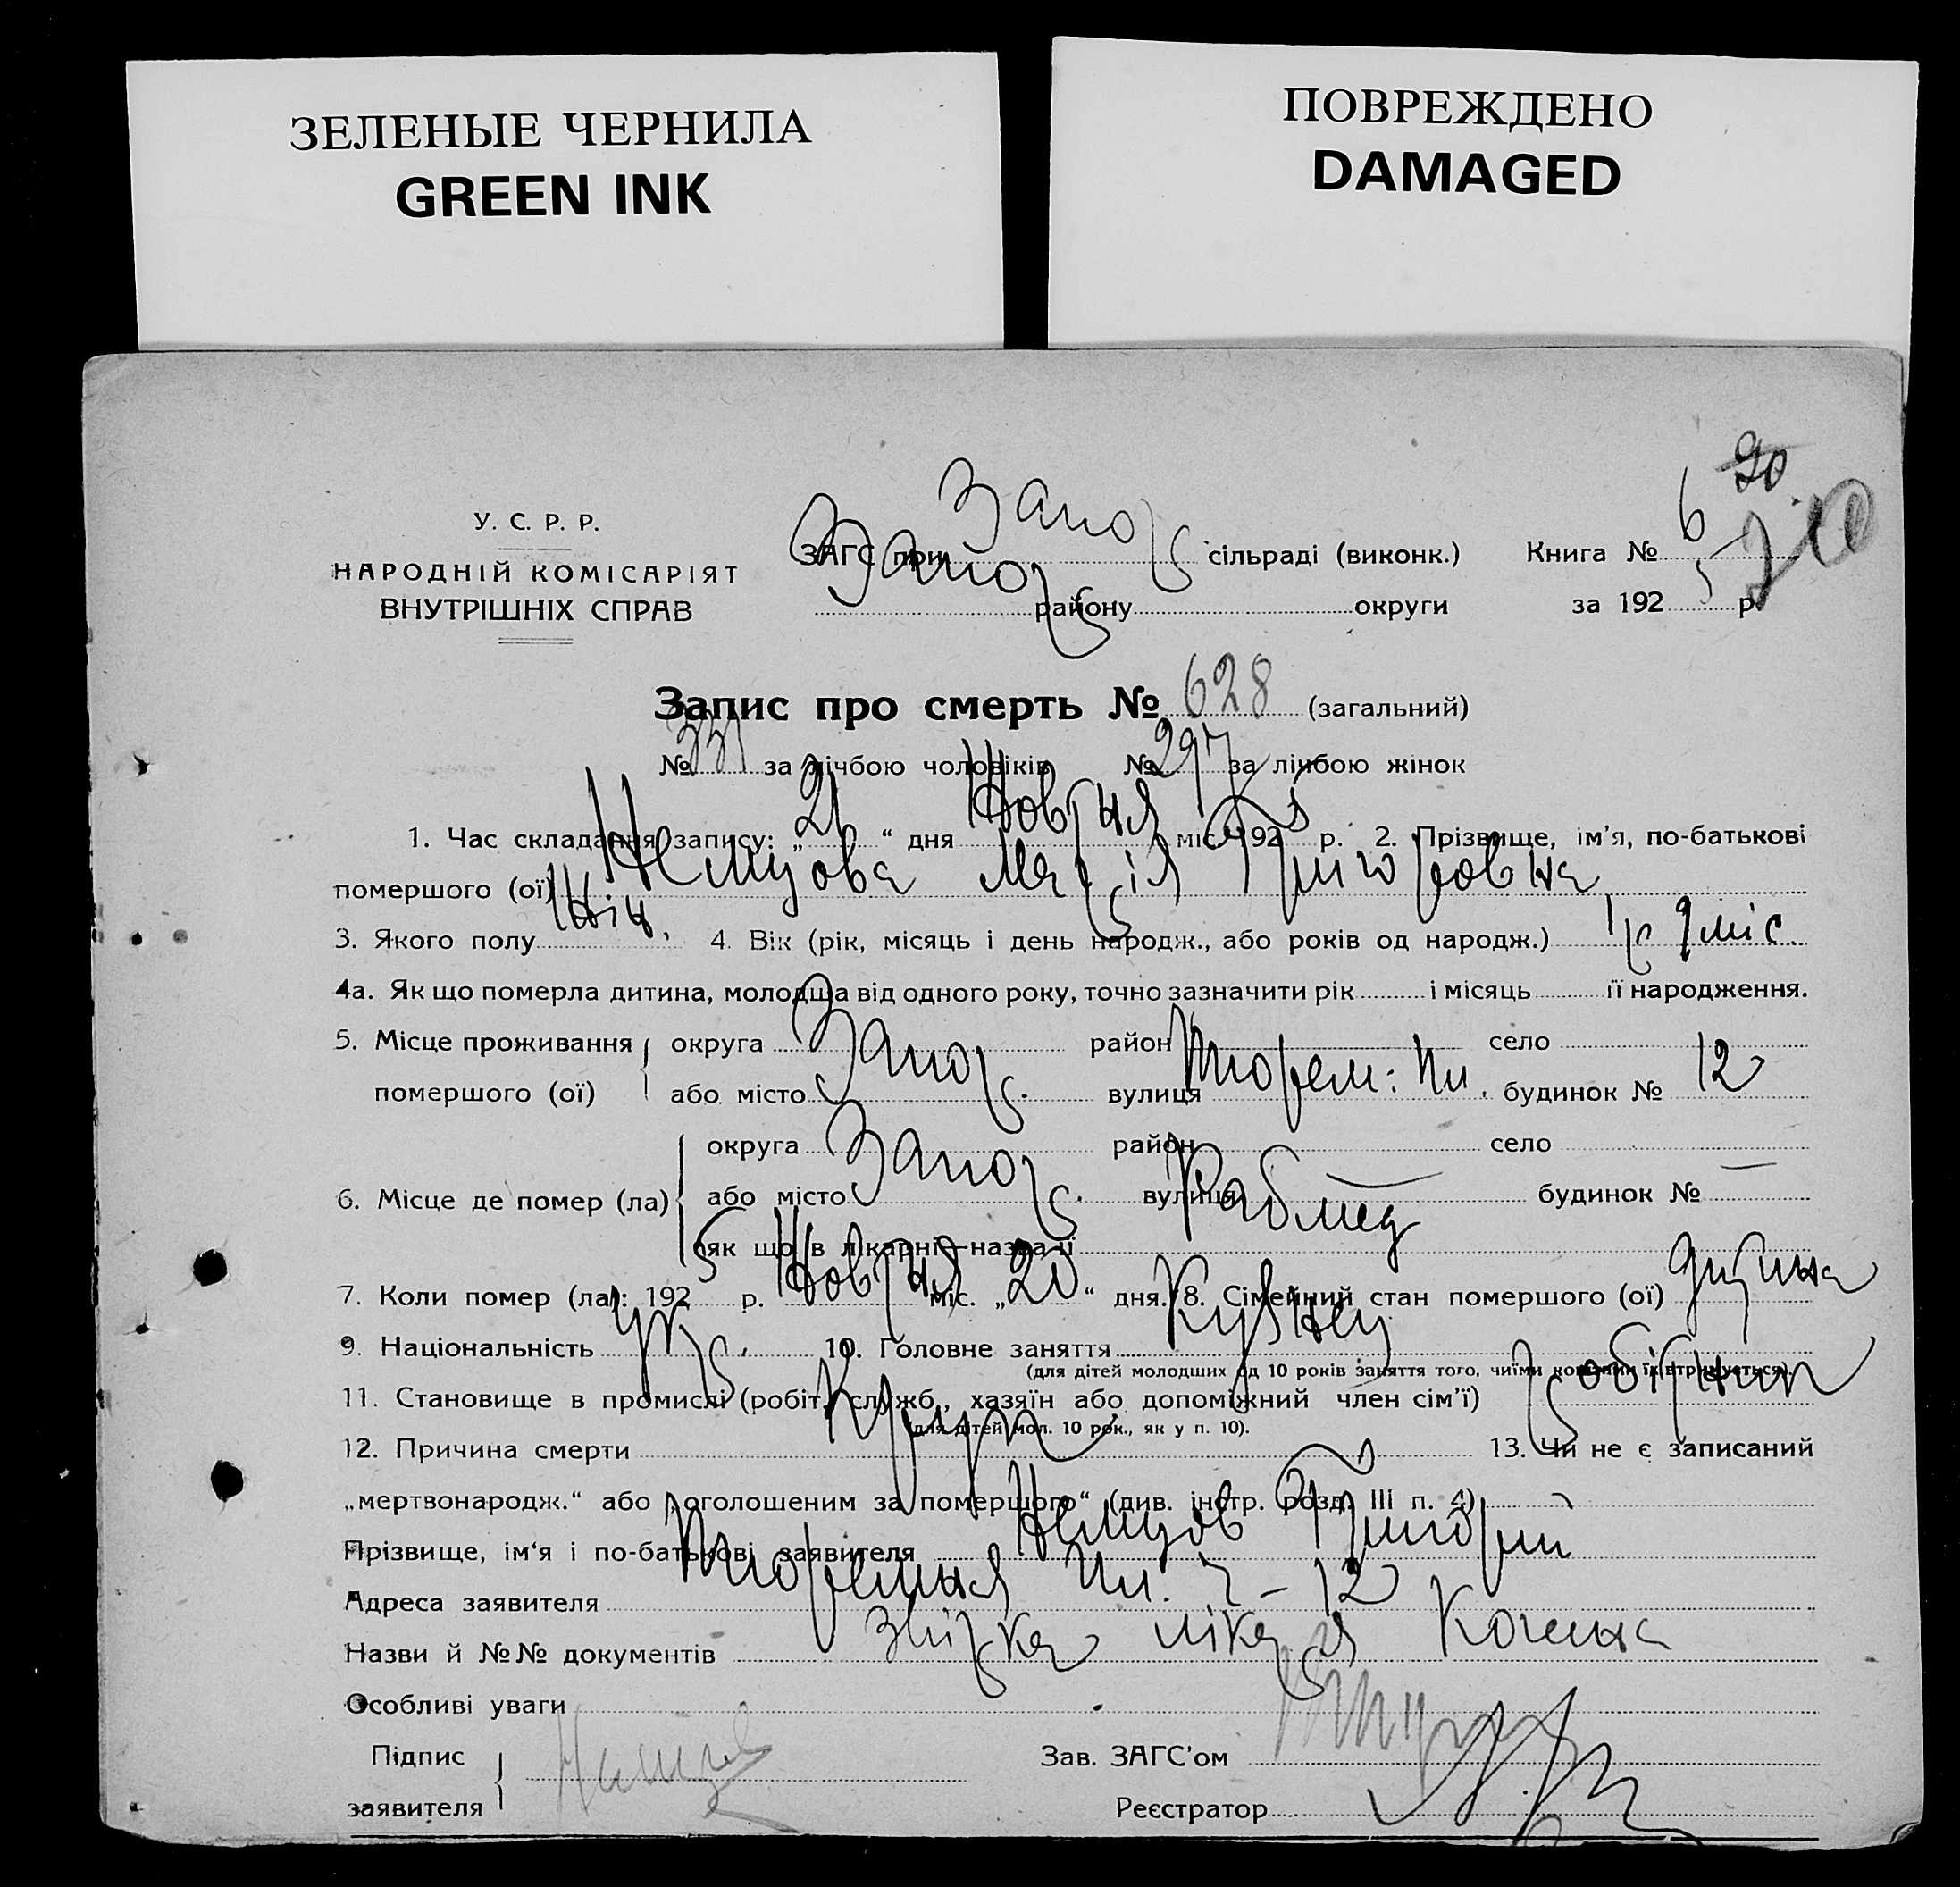 ЗЕЛЕНЫЕ ЧЕРНИЛА
GREEN INK
ПОВРЕЖДЕНО
DAMAGED
У. С. Р. Р.
НАРОДНІЙ КОМІСАРІЯТ
ВНУТРІШНІХ СПРАВ
ЗАГС при Запор сільраді (виконк.)
Запор району округи
Книга № 6
за 192 5 р.
Запис про смерть № 628 (загальний)
№ 331 за лічбою чоловіків № 297 за лічбою жінок
1. Час складання запису: „21“ дня Жовтня міс. 192 5 р. 2. Прізвище, ім’я, по-батькові
помершого (ої) Немцова Марія Григоровна
3. Якого полу Жін. 4. Вік (рік, місяць і день народж., або років од народж.) 1 р 9 міс.
4а. Як що померла дитина, молодша від одного року, точно зазначити рік і місяць її народження.
5. Місце проживання округа Запор. район село
помершого (ої) або місто вулиця Тюрем: пл. будинок № 12
округа Запор. район село
6. Місце де помер (ла) або місто вулиця — будинок № —
як що в лікарні—назва її Рабмед
7. Коли помер (ла): 192 5 р. Жовтня міс. „20“ дня. 8. Сімейний стан помершого (ої) дитина
9. Національність Укр. 10. Головне заняття Кузнец
(для дітей молодших од 10 років заняття того, чиїми коштами їх втримується).
11. Становище в промислі (робіт., служб., хазяїн або допоміжний член сім’ї) робітник
(для дітей мол. 10 рок., як у п. 10).
12. Причина смерти Круп 13. Чи не є записаний
„мертвонародж.“ або „оголошеним за помершого“ (див. інстр. розд. III п. 4)
Прізвище, ім‘я і по-батькові заявителя Немцов Григорій
Адреса заявителя Тюремная пл. 12
Назви й №№ документів лікаря
Особливі уваги
Підпис заявителя Немцов
Зав. ЗАГС’ом
Реєстратор